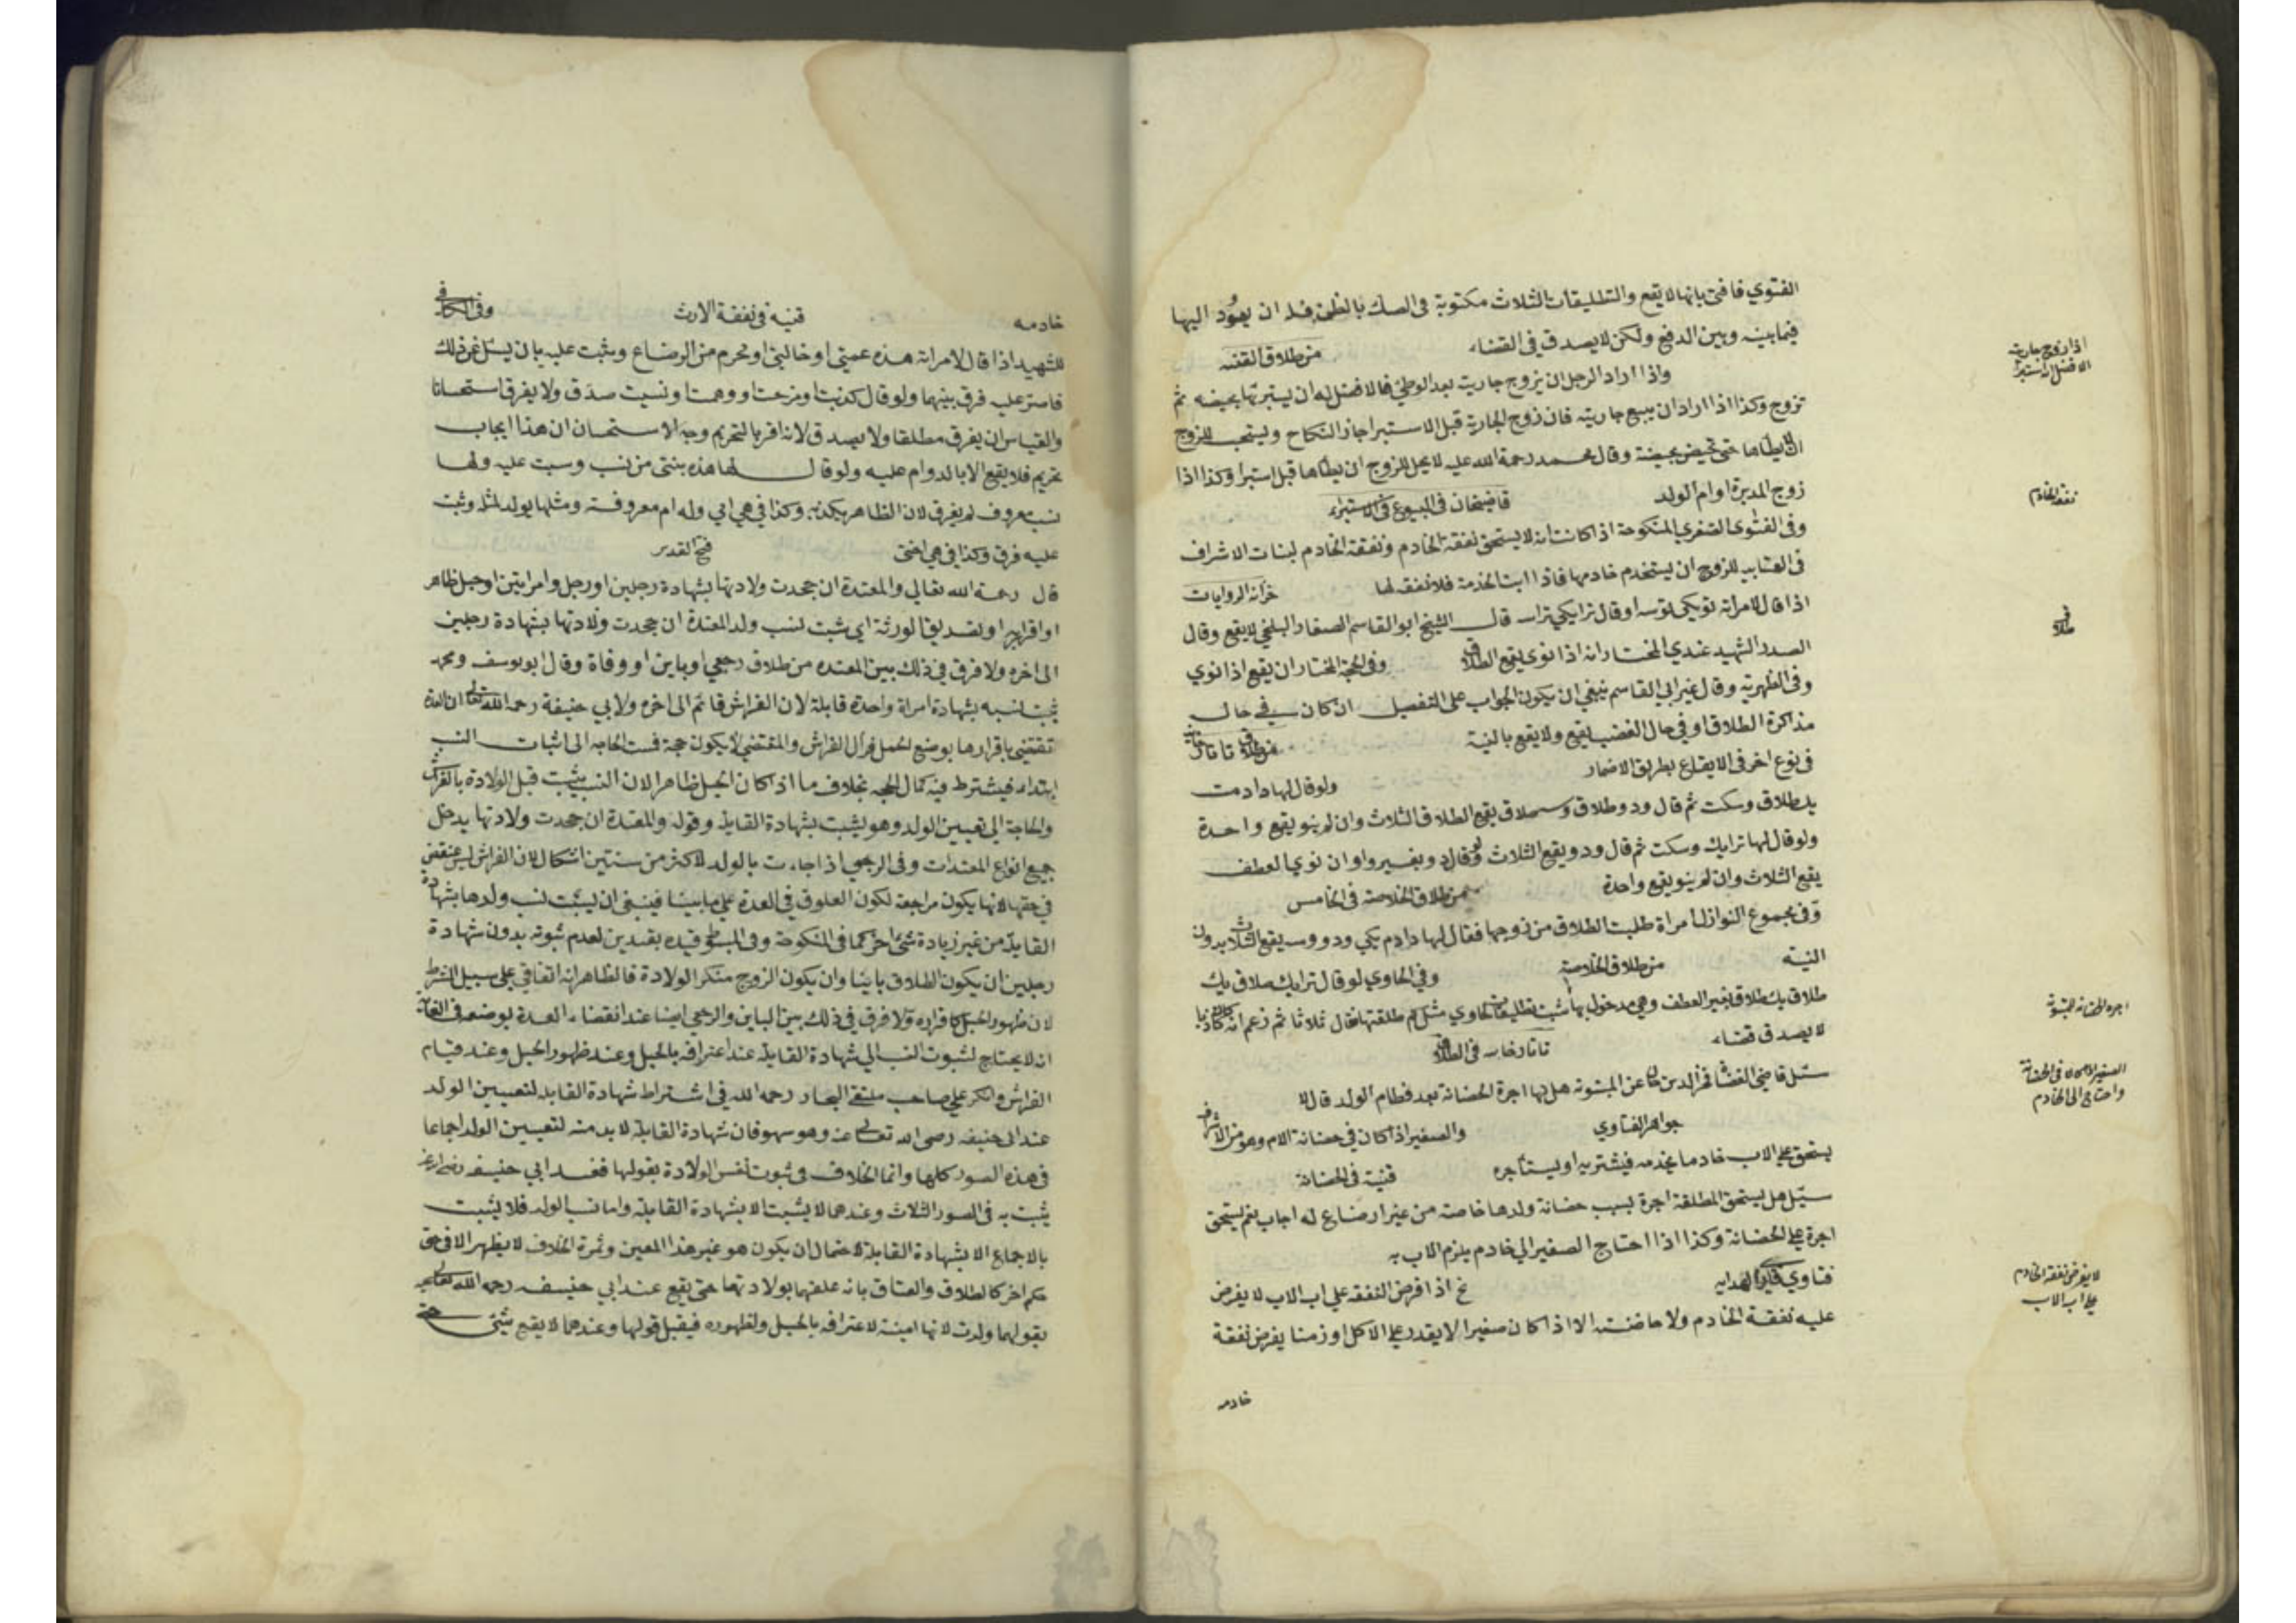 الفتوي فافتي بانها لا يقع والتطليقات الثلاث مكتوبة في الصك بالظن فله ان يعود اليها
فيما بينه وبين ولكن لا يصدق في القضاء من طلاق القنيه
واذا اراد الرجل ان يزوج جاريته بعد الوطئ فالافضل له ان يستبرئها بحيضه ثم
تزوج وكذا اذا اراد ان يبيع جاريته فان زوج الجارية قبل الاستبرا جاز النكاح ويستحب للزوج
ان لا يطأها حتى تحيض بحيضة وقال محمد رحمة الله عليه لا يحل للزوج ان يطأها قبل استبرا وكذا اذا
زوج المدبرة او ام الولد قاضيخان في البيوع في الاستبراء
وفي الفتوى الصغري المنكوحة اذا كانت لا يستحق نفقة الخادم ونفقة الخادم لبنات الاشراف
في للزوج ان يستخدم خادمها فاذا ابت الخدمة فلا نفقه لها خزانه الروايات
اذا قال لامراته وقال قال الشيخ ابو القاسم الصفار البلخي لا يقع وقال
الصدر الشهيد عندي المختار انه اذا نوى يقع الطلاق وفي الحجة المختار ان يقع اذا نوي
وفي الظهرية وقال غير ابي القاسم ينبغي ان يكون الجواب على التفصيل ان كان في حال
مذاكرة الطلاق او في حال الغضب يقع ولا يقع بالنية من طلاق تاتارخانيه
في نوع اخر في الايقاع بطريق الاضمار ولو قال لها دادمت
يك طلاق وسكت ثم قال ودو طلاق وسه طلاق يقع الطلاق الثلاث وان لم ينو يقع واحدة
ولو قال لها ترايك وسكت ثم قال ودو يقع الثلاث ولو قال دو بغير واو ان نوي العطف
يقع الثلاث وان لم ينو يقع واحدة من طلاق الخلاصة في الخامس
وفي مجموع النوازل امراة طلبت الطلاق من زوجها فقال لها دادم يكي ودو وسه يقع الثلاث بدون
النية من طلاق الخلاصة وفي الحاوي لو قال ترايك طلاق يك
طلاق يك طلاق بغير العطف وهي مدخول بها حاوي سئل كم طلقتها فقال ثلاثا ثم زعم انه كان كاذبا
لا يصدق قضاء تاتارخانيه في الطلاق
سئل قاضي القضاة فخر الدين خان عن المبتوته هل لها اجرة الحضانة بعد فطام الولد قال لا
جواهر الفتاوي والصغير اذا كان في حضانة الام وهو من الاشراف
يستحق على الاب خادما يخدمه فيشتريه او يستأجره قنية في الحضانة
سئل هل يستحق المطلقة اجرة بسبب حضانة ولدها خاصة من غير ارضاع له اجاب نعم يستحق
اجرة على الحضانة وكذا اذا احتاج الصغير الي خادم يلزم الاب به
فتاوي الهدايه نخ اذا فرض النفقه علي اب الاب لا يفرض
عليه نفقة الخادم ولا حاضنته الا اذا كان صغيرا لا يقدر على الاكل او زمنا يفرض نفقة
خادمه
اذا زوج جاريته
الافضل ان يستبرأ
نفقه الخادم
في طلاق
اجره الحضانه للمبتوته
الصغير اذا كان في الحضانة
واحتاج الى الخادم
لا يفرض نفقه الخادم
على اب الاب
خادمه قنيه في نفقة الارث وفي الكافي
للشهيد اذا قال لامراته هذه عمتي او خالتي او محرم من الرضاع ويثبت عليه بان يسئل عن ذلك
فاستمر عليه فرق بينهما ولو قال كذبت او مزحت او وهمت او نسيت صدق ولا يفرق استحسانا
والقياس ان يفرق مطلقا ولا يصدق لانه اقر بالتحريم وجه الاستحسان ان هذا ايجاب
تحريم فلا يقع الا بالدوام عليه ولو قال لها هذه بنتي من نسب وثبت عليه ولها
نسب معروف لم يفرق لان الظاهر يكذبه وكذا في هي امي وله ام معروفة ومثلها يولد لمثله وثبت
عليه فرق وكذا في هي اختي فتح القدير
قال رحمة الله تعالى والمعتدة ان جحدت ولادتها بشهادة رجلين او رجل وامراتين او حبل ظاهر
او اقراره او تصديق الورثة اي يثبت نسب ولد المعتدة ان جحدت ولادتها بشهادة رجلين
الى اخره ولا فرق في ذلك بين المعتده من طلاق رجعي او باين او وفاة وقال ابو يوسف ومحمد
يثبت نسبه بشهادة امراة واحدة قابلة لان الفراش قائم الى اخره ولابي حنيفة رحمه الله تعالى ان العدة
تنقضي باقرارها بوضع الحمل فزال الفراش والمنقضي لا يكون حجة فمست الحاجه الى اثبات النسب
ابتداء فيشترط فيه كمال الحجه بخلاف ما اذا كان الحبل ظاهرا لان النسب يثبت قبل الولادة بالفراش
والحاجة الي تعيين الولد وهو يثبت بشهادة القابلة وقوله والمعتدة ان جحدت ولادتها يدخل
جميع انواع المعتدات وفي الرجعي اذا جاءت بالولد لاكثر من سنتين اشكال لان الفراش ليس بمنقضي
في حقها لانها يكون مراجعة لكون العلوق في العدة على ما بينا فينبغي ان يثبت نسب ولدها بشهادة
القابلة من غير زيادة شيء اخر كما في المنكوحة وفي المبسوط قيده بقيدين لعدم ثبوته بدون شهادة
رجلين ان يكون الطلاق باينا وان يكون الزوج منكر الولادة فالظاهر انه اتفاقي على سبيل الشرط
لان ظهور الحبل كاقراره ولا فرق في ذلك بين الباين والرجعي ايضا عند انقضاء العدة بوضعه
انه لا يحتاج لثبوت النسب الي شهادة القابلة عند اعترافه بالحبل وعند ظهور الحبل وعند قيام
الفراش وانكر على صاحب ملتقي البحار رحمه الله في اشتراط شهادة القابلة لتعيين الولد
عند ابي حنيفه رضى الله تعالى عنه وهو سهو فان شهادة القابلة لا بد منه لتعيين الولد اجماعا
في هذه الصور كلها وانما الخلاف في ثبوت نفس الولادة بقولها فعند ابي حنيفه
يثبت به في الصور الثلاث وعندهما لا يثبت الا بشهادة القابلة واما نسب الولد فلا يثبت
بالاجماع الا بشهادة القابلة لاحتمال ان يكون هو غير هذا المعين وثمرة الخلاف لا يظهر الا في حق
حكم اخر كالطلاق والعتاق بانه علقهما بولادتها حتى يقع عند ابي حنيفه رحمه الله تعالى
بقولها ولدت لانها امينة لاعترافه بالحبل ولظهوره فيقبل قولها وعندهما لا يقع شئ حتى